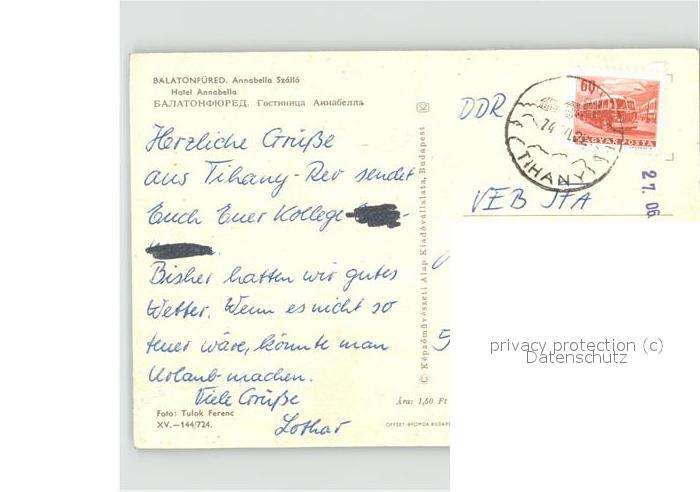 BALATONFÜRED. Annabella Szálló
Hotel Annabella
БАЛАТОНФЮРЕД. Гостиница Аннабелла
Herzliche Grüße
aus Tihany-Rev sendet
Euch Euer Kollege
Bisher hatten wir gutes
Wetter. Wenn es nicht so
teuer wäre, könnte man
Urlaub machen.
Viele Grüße
Lothar
Foto: Tulok Ferenc
XV.—144/724.
© Képzőművészeti Alap Kiadóvállalata, Budapest
Ára: 1,50 Ft
DDR
VEB IFA
60f
MAGYAR POSTA
TIHANY
27. 06.
privacy protection (c)
Datenschutz